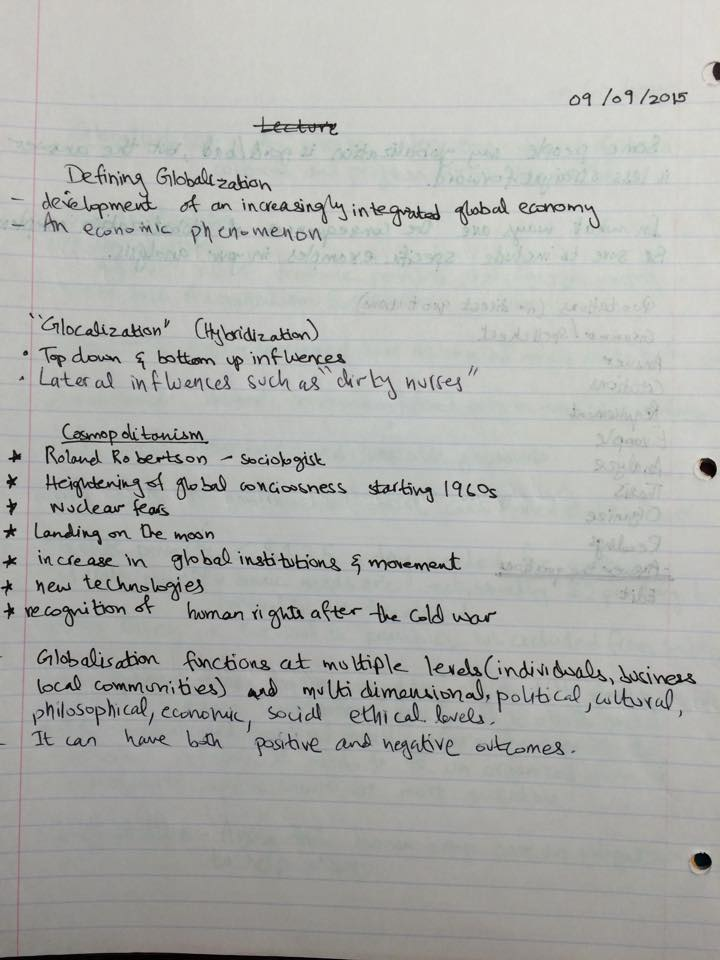 09/09/2015
Lecture
Defining Globalization
- development of an increasingly integrated global economy
- An economic phenomenon
"Glocalization" (Hybridization)
• Top down & bottom up influences
• Lateral influences such as "dirty nurses"
Cosmopolitanism
* Roland Robertson - sociologist
* Heightening of global conciosness starting 1960s
* Nuclear fears
* Landing on the moon
* increase in global institutions & movement
* new technologies
* recognition of human rights after the cold war
- Globalisation functions at multiple levels (individuals, business
local communities) and multi dimensional, political, cultural,
philosophical, economic, social ethical levels.
- It can have both positive and negative outcomes.